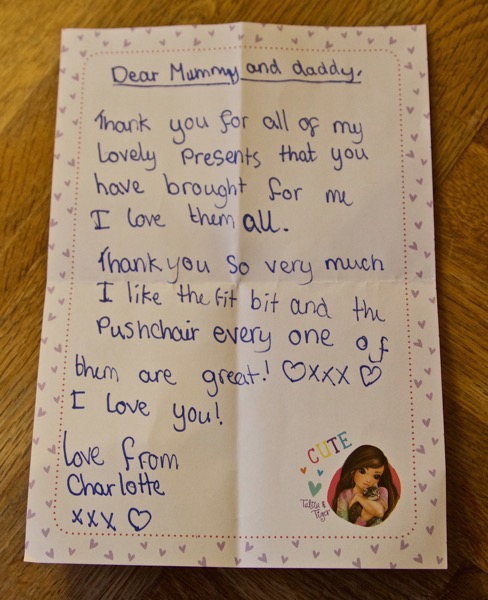 Dear Mummy and daddy,
Thank you for all of my
lovely presents that you
have brought for me
I love them all.
Thank you so very much
I like the fit bit and the
Pushchair every one of
them are great! ♡xxx ♡
I love you!
love from
Charlotte
xxx ♡
CUTE
Talita &
Tiger